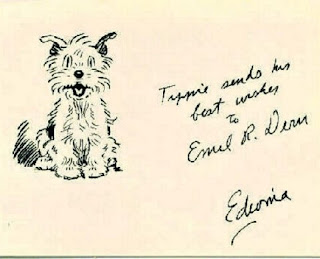 Tippie sends his
best wishes
to
Emil R. Dern
Edwina